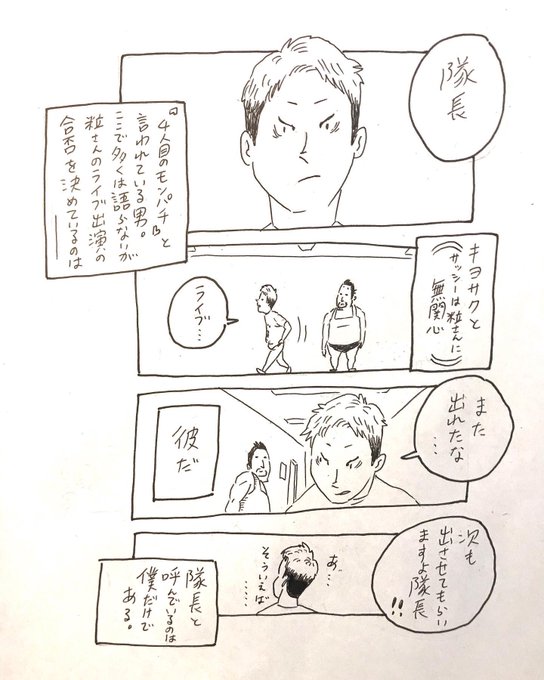 隊長
『4人目のモンパチ』と
言われている男。
ここで多くは語らないが
粒さんのライブ出演の
合否を決めているのは
キヨサクと
サッシーは粒さんに
無関心
ライブ…
また
出れたな
……
彼だ
次も
出させてもらい
ますよ隊長!!
あ…
そういえば
……
隊長と
呼んでいるのは
僕だけで
ある。